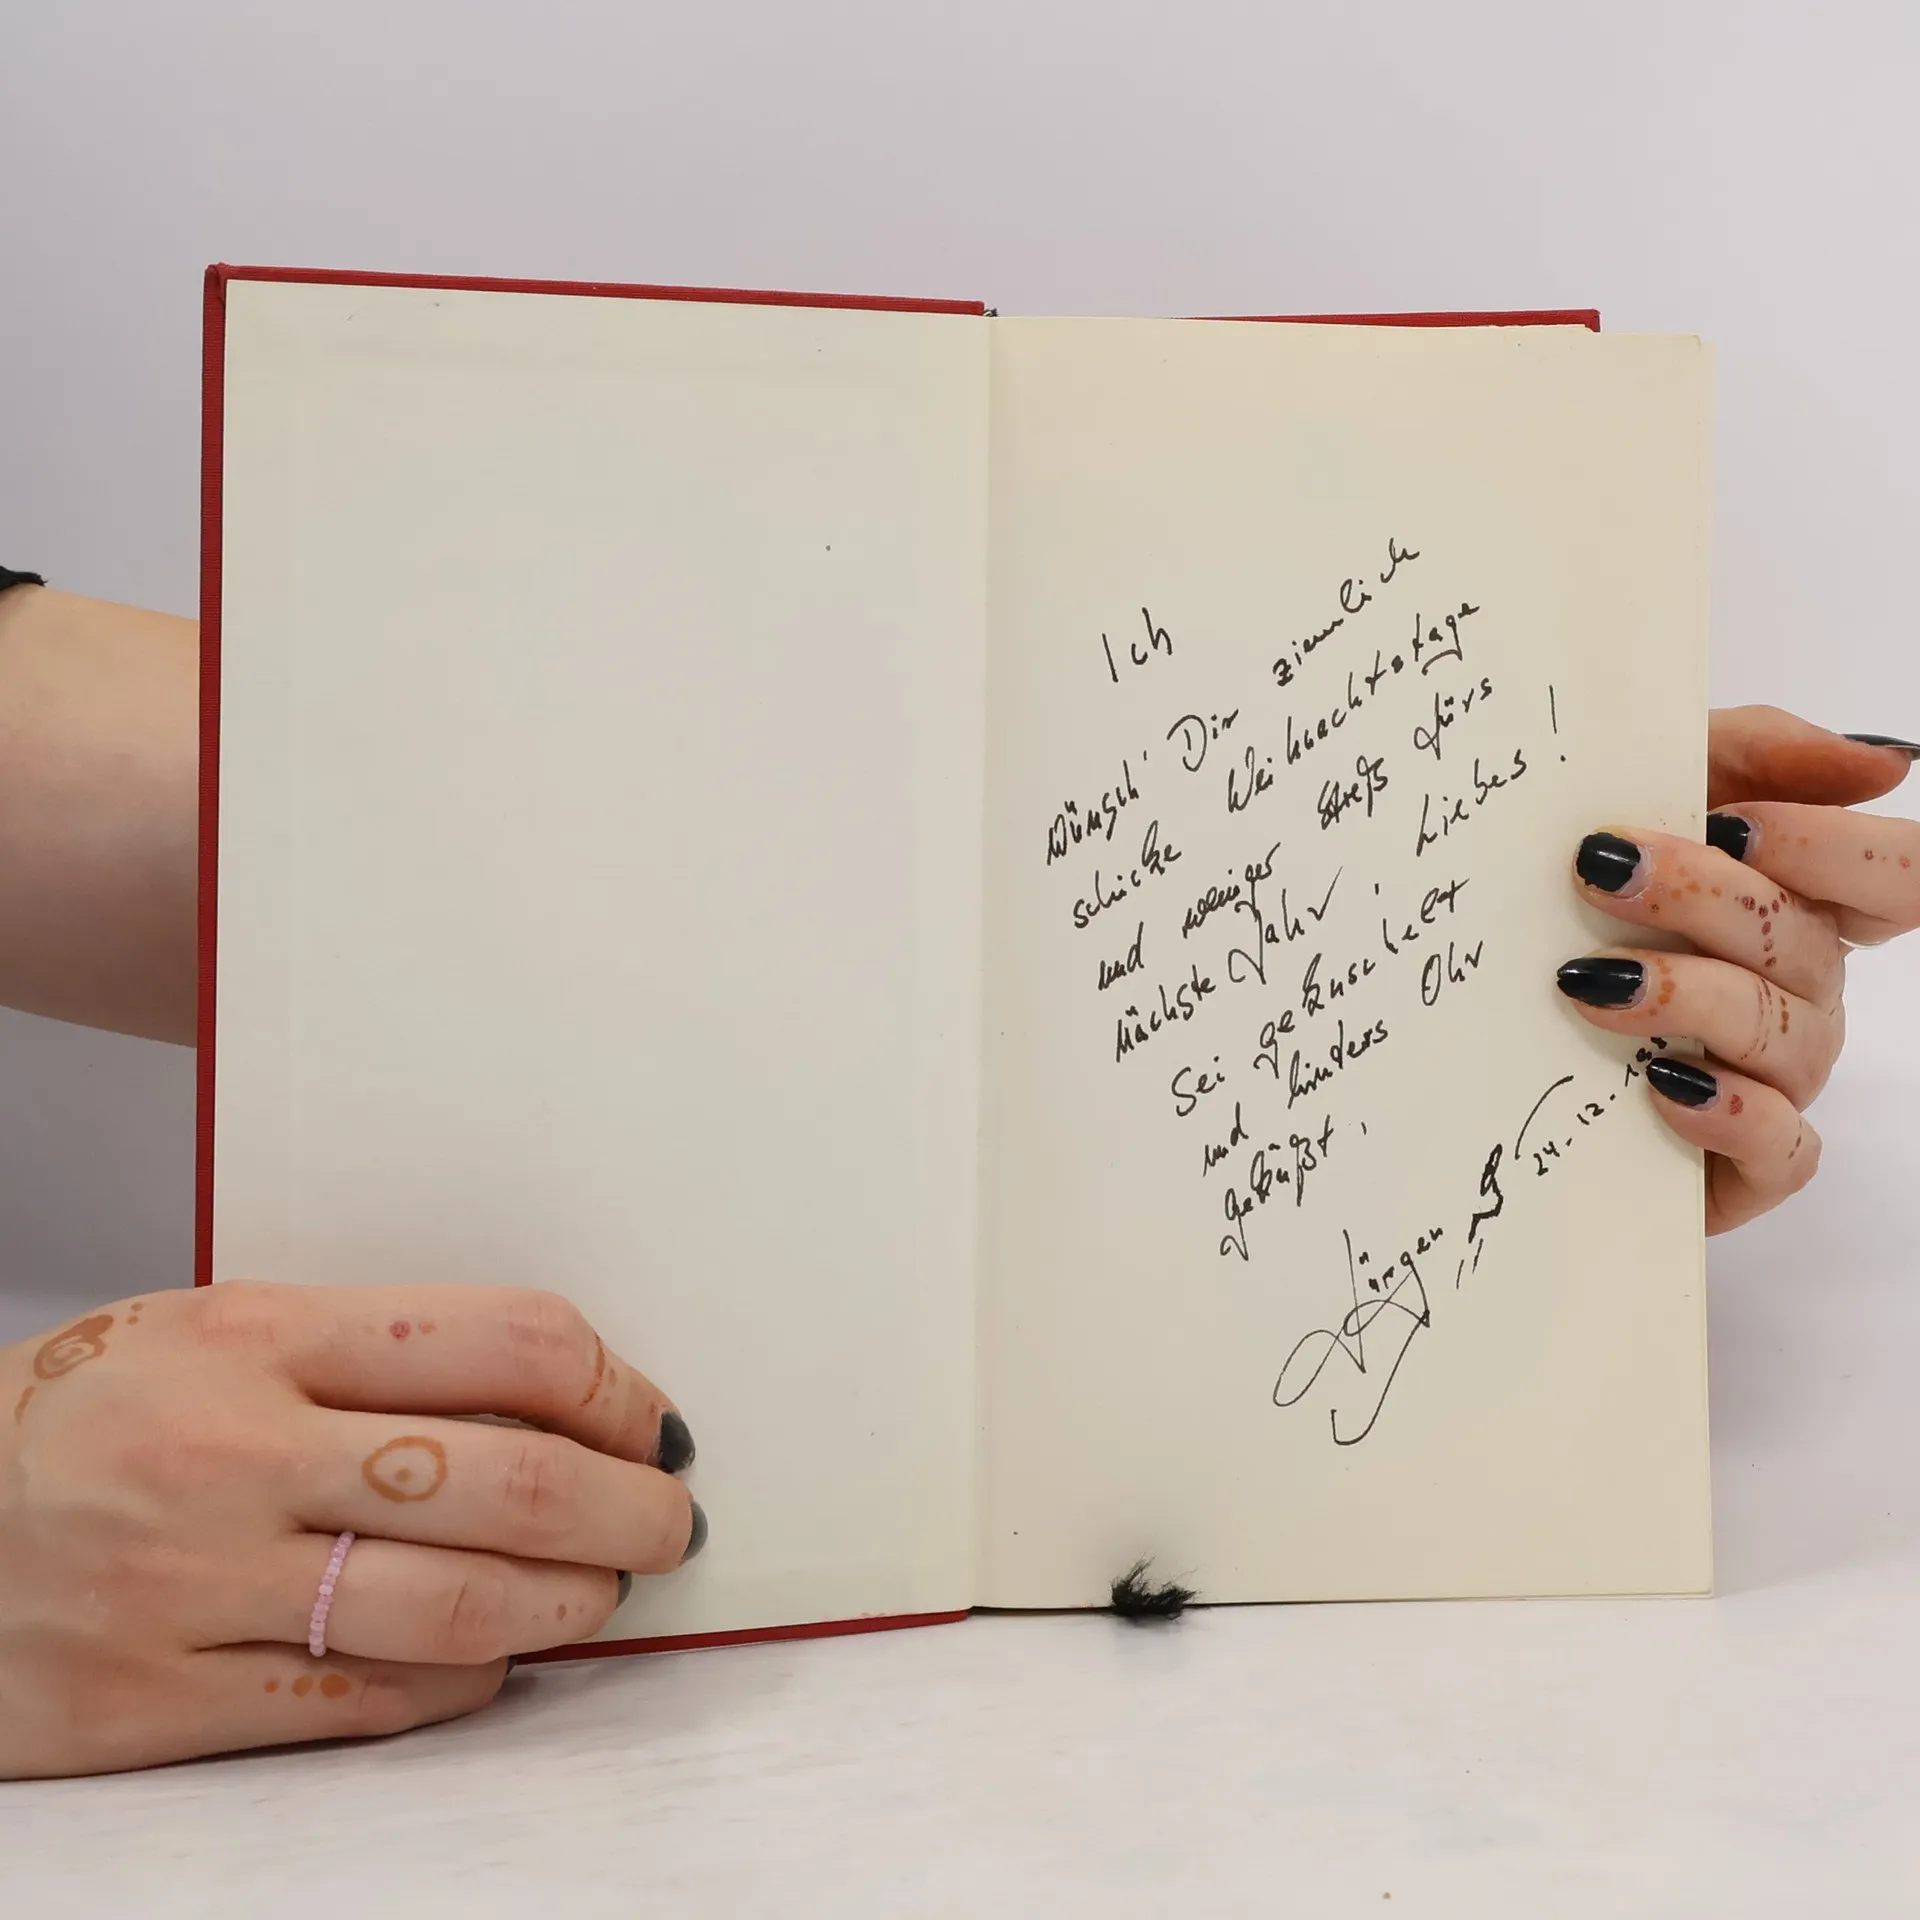 Ich
wünsch' Dir ziemlich
schicke Weihnachtstage
und weniger Streß fürs
Nächste Jahr, Liebes!
Sei geknuschelt
und hinters Ohr
geküßt,
Jürgen
24.12.198